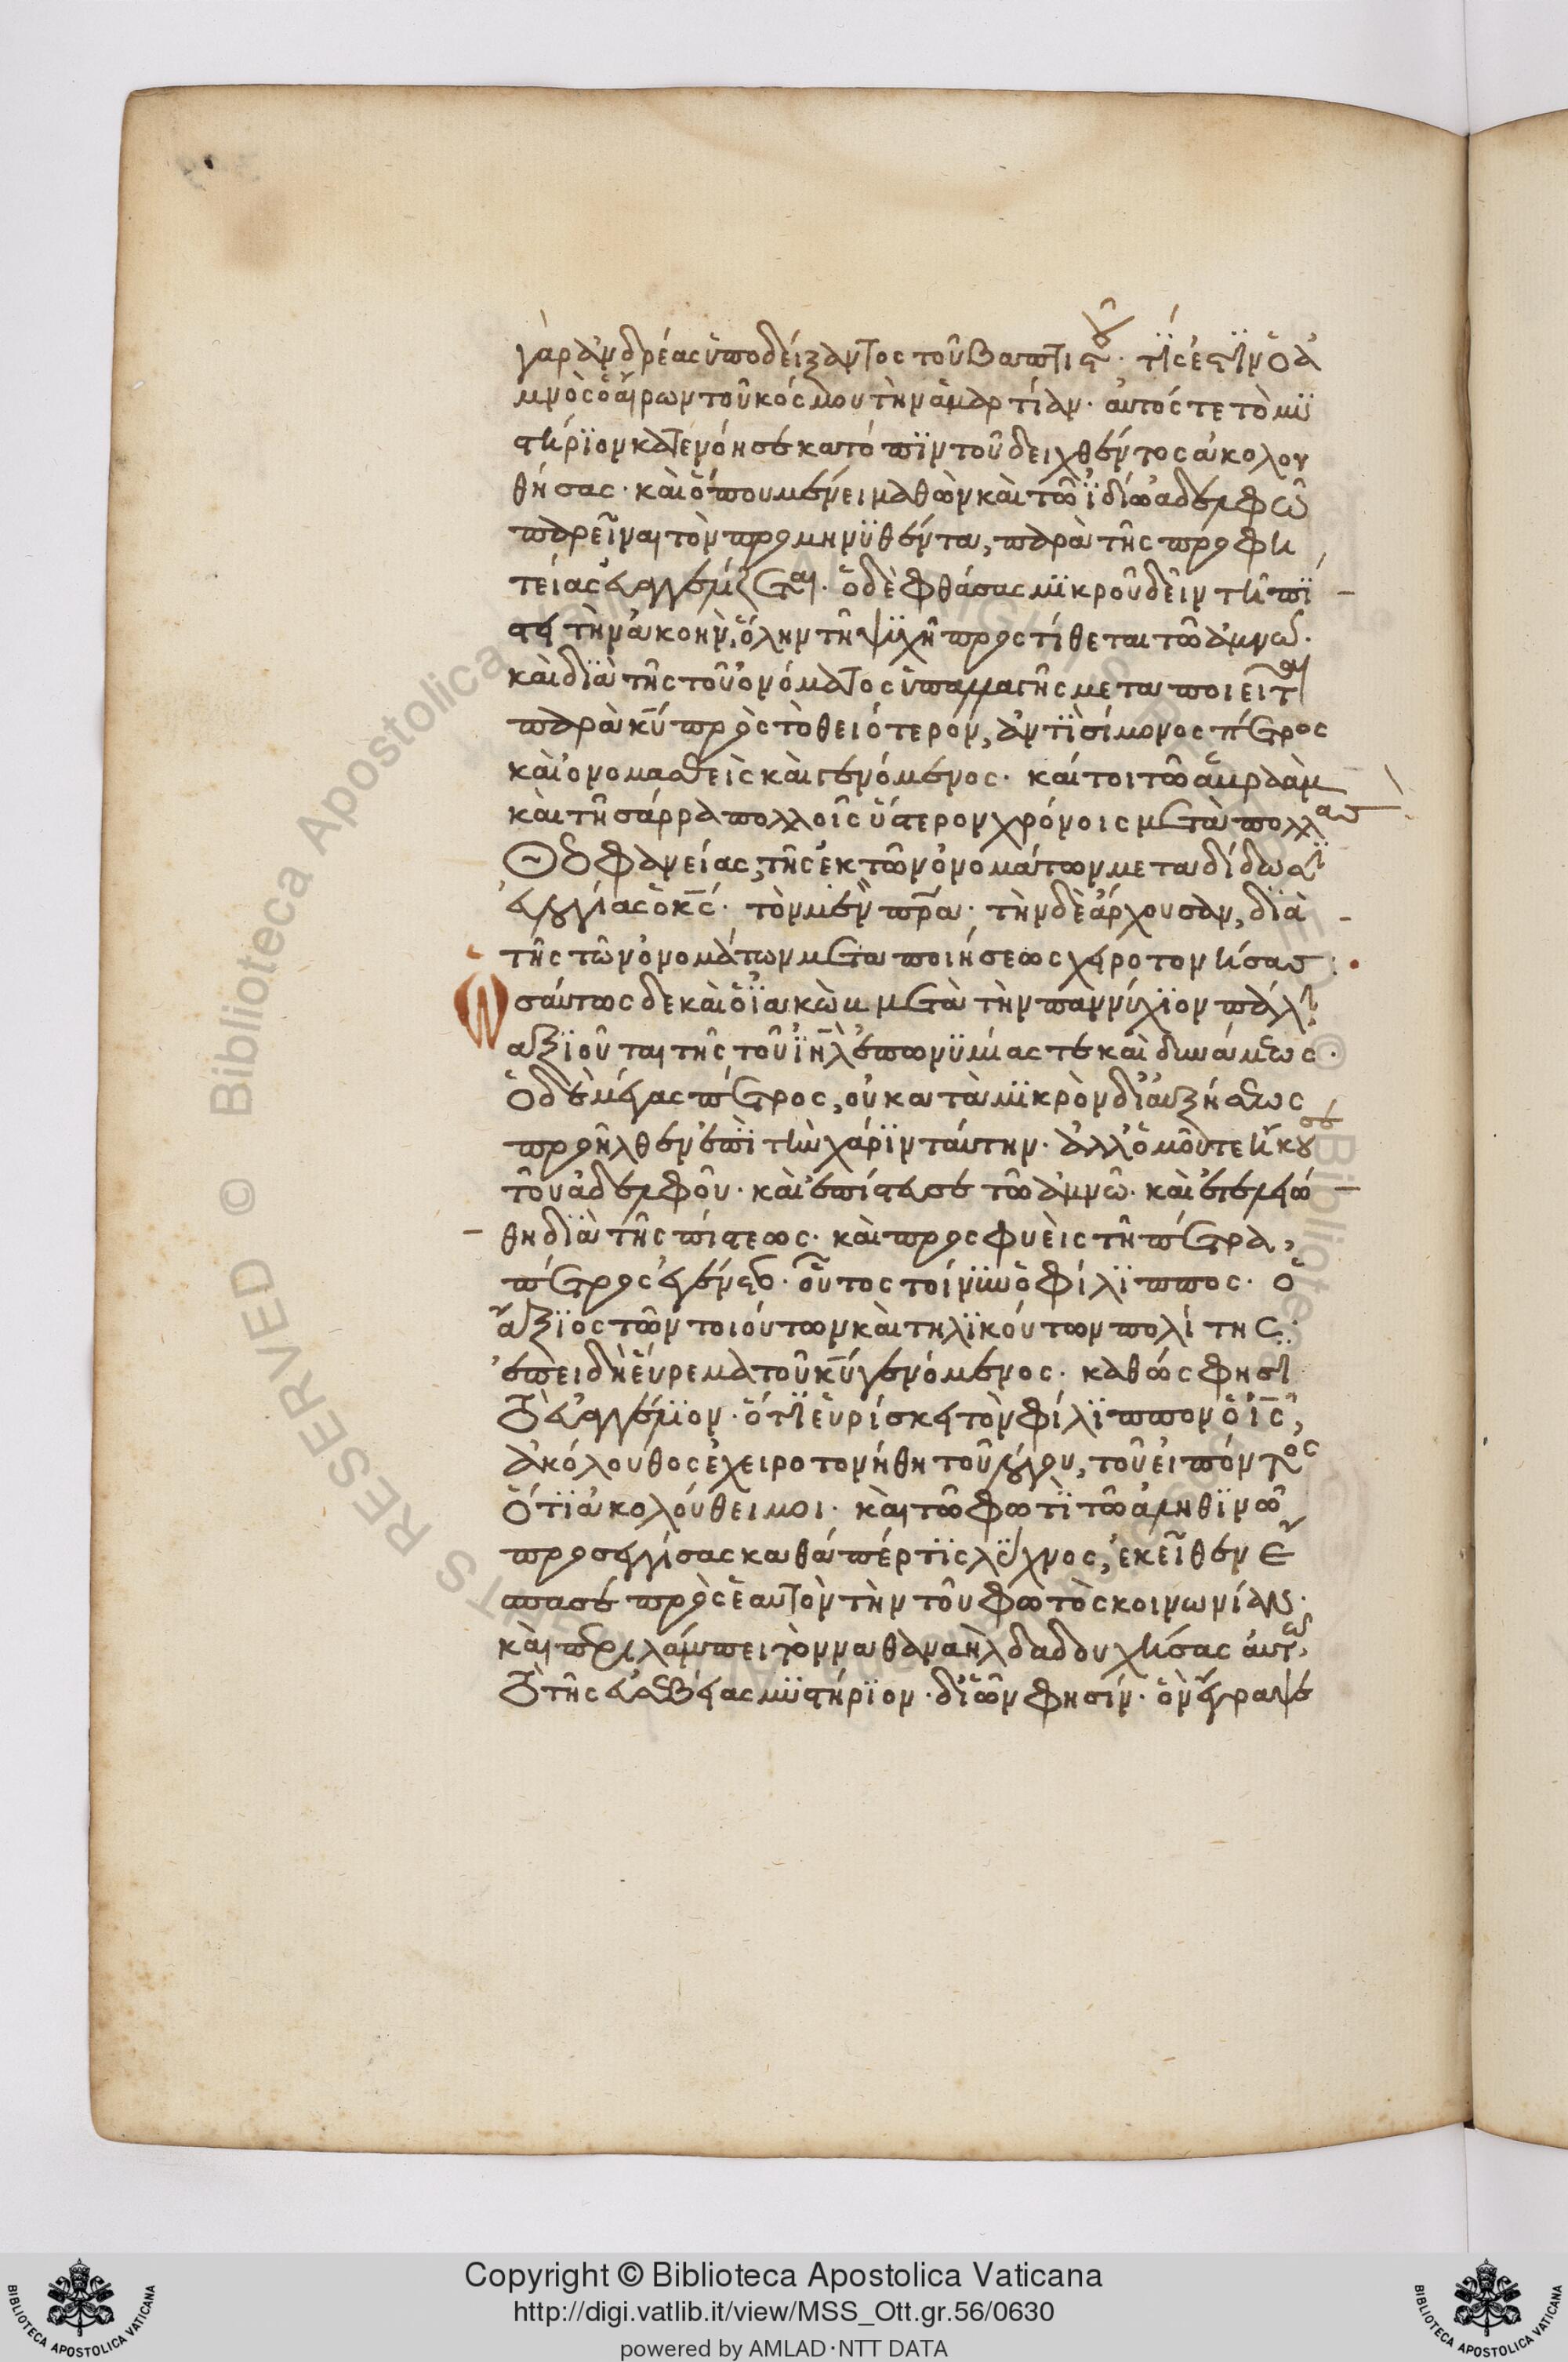 γὰρ ἀνδρέας ὑποδείξαντος τοῦ βαπτιστοῦ· τίς ἐστὶν ὁ ἀ
μνὸς ὁ αἴρων τοῦ κόσμου τὴν ἁμαρτίαν· αὐτός τε τὸ μυ
στήριον κατενόησε κατόπιν τοῦ δειχθέντος ἀκολου
θήσας· καὶ ὅπου μένει μαθὼν καὶ τῶ ἰδίω ἀδελφῶ
παρεῖναι τὸν προμηνυθέντα, παρὰ τῆς προφη
τείας εὐαγγελίζεται· ὁ δὲ φθάσας μικροῦ δεῖν τῆ πί
στει τὴν ἀκοὴν, ὅλην τῆ ψυχῆ προστίθεται τῶ ἀμνῶ·
καὶ διὰ τῆς τοῦ ὀνόματος ὑπαλλαγῆς μεταποιεῖται
παρὰ κυ πρὸς τὸ θειότερον, ἀντὶ σίμονος πέτρος
καὶ ὀνομασθεὶς καὶ γενόμενος· καίτοι τῶ ἀβραὰμ
καὶ τῆ σάρρα πολλοῖς ὕστερον χρόνοις μετὰ πολλὰς
θεοφανείας, τῆς ἐκ τῶν ὀνομάτων μεταδίδωσι
εὐλογίας ὁ κς· τὸν μὲν πρα· τὴν δὲ ἄρχουσαν, διὰ
τῆς τῶν ὀνομάτων μεταποιήσεως χειροτονήσας:
Ὡσαύτως δε καὶ ὁ ἰακὼβ μετὰ τὴν παννύχιον πάλη
ἀξιοῦται τῆς τοῦ ιηλ ἐπωνυμίας τε καὶ δυνάμεως·
Ὁ δὲ μέγας πέτρος, οὐ κατὰ μικρὸν δι αὐξήσεως
προῆλθεν ἐπὶ τὴν χάριν ταύτην· ἀλλ ὁμοῦ τε ἤκουσε
τοῦ ἀδελφοῦ· καὶ ἐπίστευσε τῶ ἀμνῶ· καὶ ἐτελειώ
θη διὰ τῆς πίστεως· καὶ προσφυεὶς τῆ πέτρα,
πέτρος ἐγένετο· οὗτος τοίνυν ὁ φίλιππος· ὁ
ἄξιος τῶν τοιούτων καὶ τηλικούτων πολίτης·
ἐπειδὴ εὕρεμα τοῦ κυ γενόμενος· καθώς φησι
τὸ εὐαγγέλιον· ὅτι εὑρίσκει τὸν φίλιππον ὁ ις,
ἀκόλουθος ἐχειροτονήθη τοῦ λόγου, τοῦ εἰπόντος
Ὅτι ἀκολούθει μοι· καὶ τῶ φωτὶ τῶ ἀληθινῶ
προσεγγίσας καθάπέρ τις λύχνος, ἐκεῖθεν ἔ
σπασε πρὸς ἑαυτὸν τὴν τοῦ φωτὸς κοινωνίαν·
καὶ περιλάμπει τὸν ναθαναὴλ δαδουχήσας αὐτῶ
τὸ τῆς εὐσεβείας μυστήριον· δι ὧν φησίν· ὃν ἔγραψε
Copyright © Biblioteca Apostolica Vaticana
http://digi.vatlib.it/view/MSS_Ott.gr.56/0630
powered by AMLAD·NTT DATA